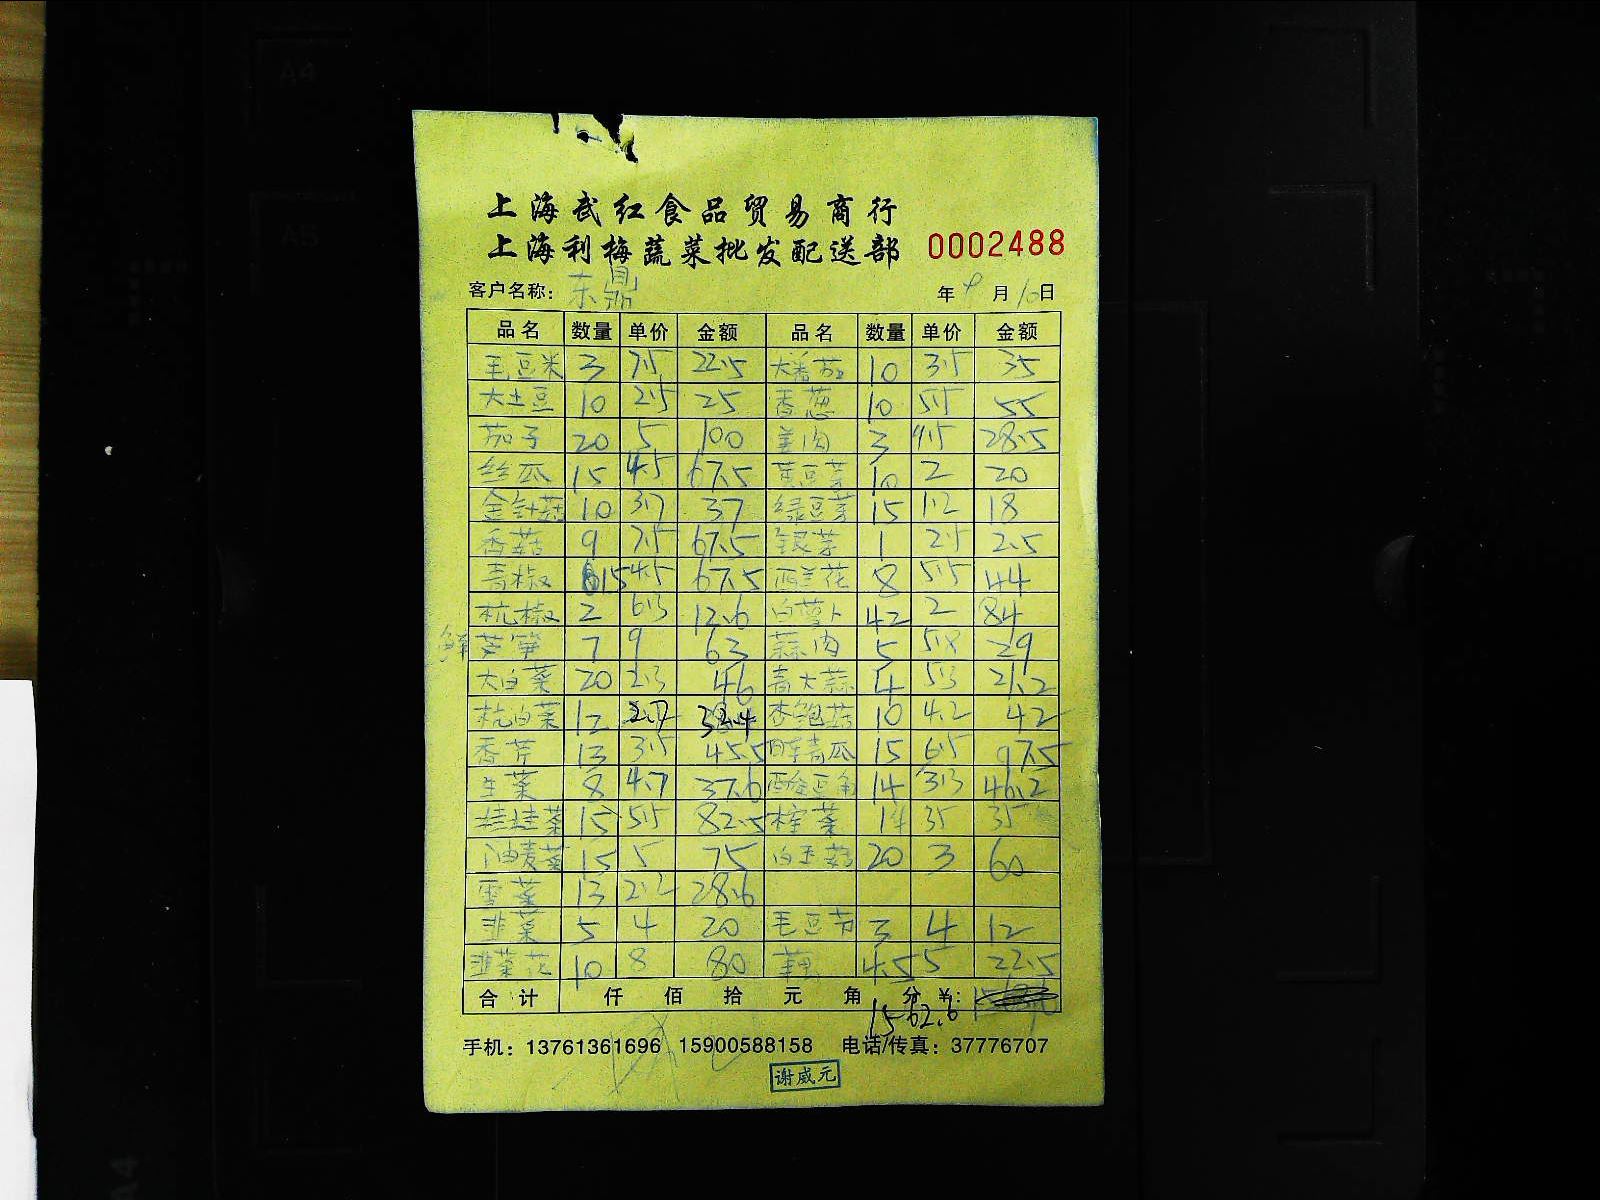 上海武红食品贸易商行
上海利梅蔬菜批发配送部 0002488
客户名称: 东鼎 年 9 月 10 日
品名 数量 单价 金额 品名 数量 单价 金额
毛豆米 3 7.5 22.5 大番茄 10 3.5 35
大土豆 10 2.5 25 香葱 10 5.5 55
茄子 20 5 100 姜肉 3 9.5 28.5
丝瓜 15 4.5 67.5 黄豆芽 10 2 20
金针菇 10 3.7 37 绿豆芽 15 1.2 18
香菇 9 7.5 67.5 银芽 1 2.5 2.5
青椒 15 4.5 67.5 西兰花 8 5.5 44
杭椒 2 6.3 12.6 白萝卜 42 2 84
鲜芦笋 7 9 63 蒜肉 5 5.8 29
大白菜 20 2.3 46 青大蒜 4 5.3 21.2
杭白菜 12 2.7 32.4 杏鲍菇 10 4.2 42
香芹 13 3.5 45.5 青瓜 15 6.5 97.5
生菜 8 4.7 37.6 酸豆角 14 3.3 46.2
娃娃菜 15 5.5 82.5 榨菜 1件 35 35
油麦菜 15 5 75 白玉菇 20 3 60
雪菜 13 2.2 28.6
韭菜 5 4 20 毛豆节 3 4 12
韭菜花 10 8 80 藕 4.5 5 22.5
合计 仟 佰 拾 元 角 分 ¥:
1562.6
手机: 13761361696 15900588158 电话/传真: 37776707
谢威元